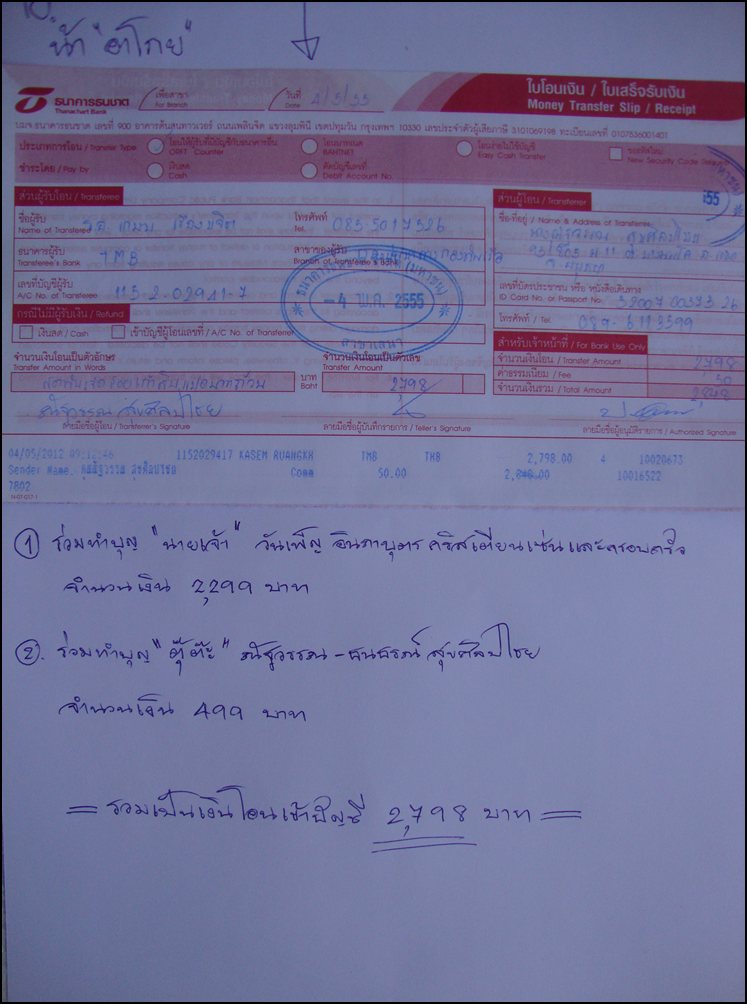 10.
น้า "อาโกย"
ธนาคารธนชาต
Thanachart Bank
เพื่อสาขา
For Branch
วันที่
Date 4/5/55
ใบโอนเงิน / ใบเสร็จรับเงิน
Money Transfer Slip / Receipt
บมจ.ธนาคารธนชาต เลขที่ 900 อาคารต้นสนทาวเวอร์ ถนนเพลินจิต แขวงลุมพินี เขตปทุมวัน กรุงเทพฯ 10330 เลขประจำตัวผู้เสียภาษี 3101069198 ทะเบียนเลขที่ 0107536001401
ประเภทการโอน / Transfer Type
โอนให้ผู้รับที่มีบัญชีกับธนาคารอื่น
ORFT Counter
โอนบาทเนต
BAHTNET
โอนจ่ายไม่ใช้บัญชี
Easy Cash Transfer
ขอรหัสใหม่
New Security Code
ชำระโดย / Pay by
เงินสด
Cash
ตัดบัญชีเลขที่
Debit Account No.
ส่วนผู้รับโอน / Transferee
ส่วนผู้โอน / Transferrer
ชื่อผู้รับ
Name of Transferee ร.ต. เกษม
โทรศัพท์
Tel. 085-5017526
ชื่อ-ที่อยู่ / Name & Address of Transferrer
ธนาคารผู้รับ
Transferee's Bank TMB
สาขาของผู้รับ
Branch of Transferee's Bank
เลขที่บัญชีผู้รับ
A/C No. of Transferee 115-2-02941-7
เลขที่บัตรประชาชน หรือ หนังสือเดินทาง
ID Card No. or Passport No.
-4 พ.ค. 2555
กรณีไม่มีผู้รับเงิน / Refund
โทรศัพท์ / Tel.
เงินสด / Cash
เข้าบัญชีผู้โอนเลขที่ / A/C No. of Transferrer
สำหรับเจ้าหน้าที่ / For Bank Use Only
จำนวนเงินโอนเป็นตัวอักษร
Transfer Amount in Words
จำนวนเงินโอนเป็นตัวเลข
Transfer Amount
จำนวนเงินโอน / Transfer Amount 2798
ค่าธรรมเนียม / Fee 50
จำนวนเงินรวม / Total Amount 2,848
สองพันเจ็ดร้อยเก้าสิบแปดบาทถ้วน
บาท
Baht 2,798
ณัฐวรรณ สุขศิลปไชย
ลายมือชื่อผู้โอน / Transferrer's Signature
ลายมือชื่อผู้บันทึกรายการ / Teller's Signature
ลายมือชื่อผู้อนุมัติรายการ / Authorized Signature
04/05/2012 09:12:46 1152029417 KASEM RUANGKH TMB TMB 2,798.00 4 10020673
Sender Name. ณัฐวรรณ สุขศิลปไชย Comm 50.00 2,848.00 10016522
7802
① ร่วมทำบุญ "นายเจ้า" วันเพ็ญ อินทาบุตร คริสเตียนเซ่น และครอบครัว
จำนวนเงิน 2,299 บาท
②. ร่วมทำบุญ "ตุ๊ต๊ะ" ณัฐวรรณ - ธนธรณ์ สุขศิลปไชย
จำนวนเงิน 499 บาท
= รวมเป็นเงินโอนเข้าบัญชี 2,798 บาท =